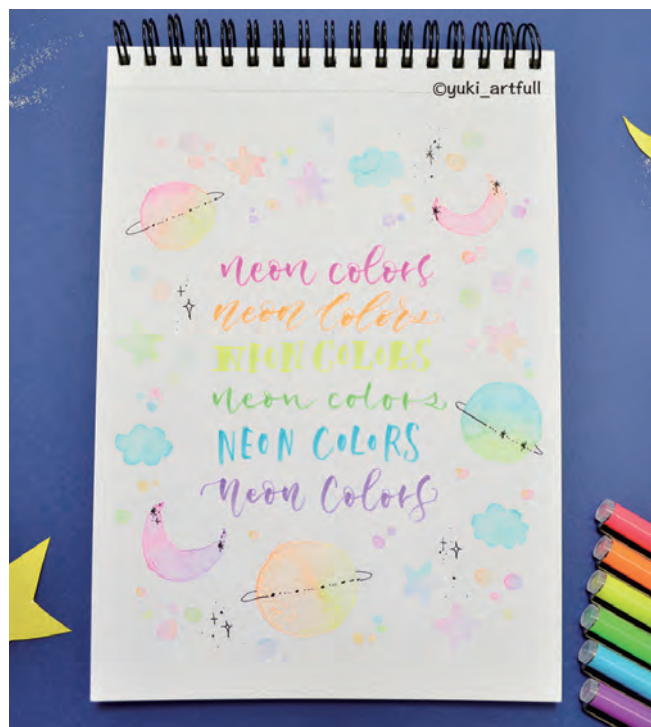 ©yuki_artfull
neon colors
neon colors
NEON COLORS
neon colors
NEON COLORS
Neon Colors